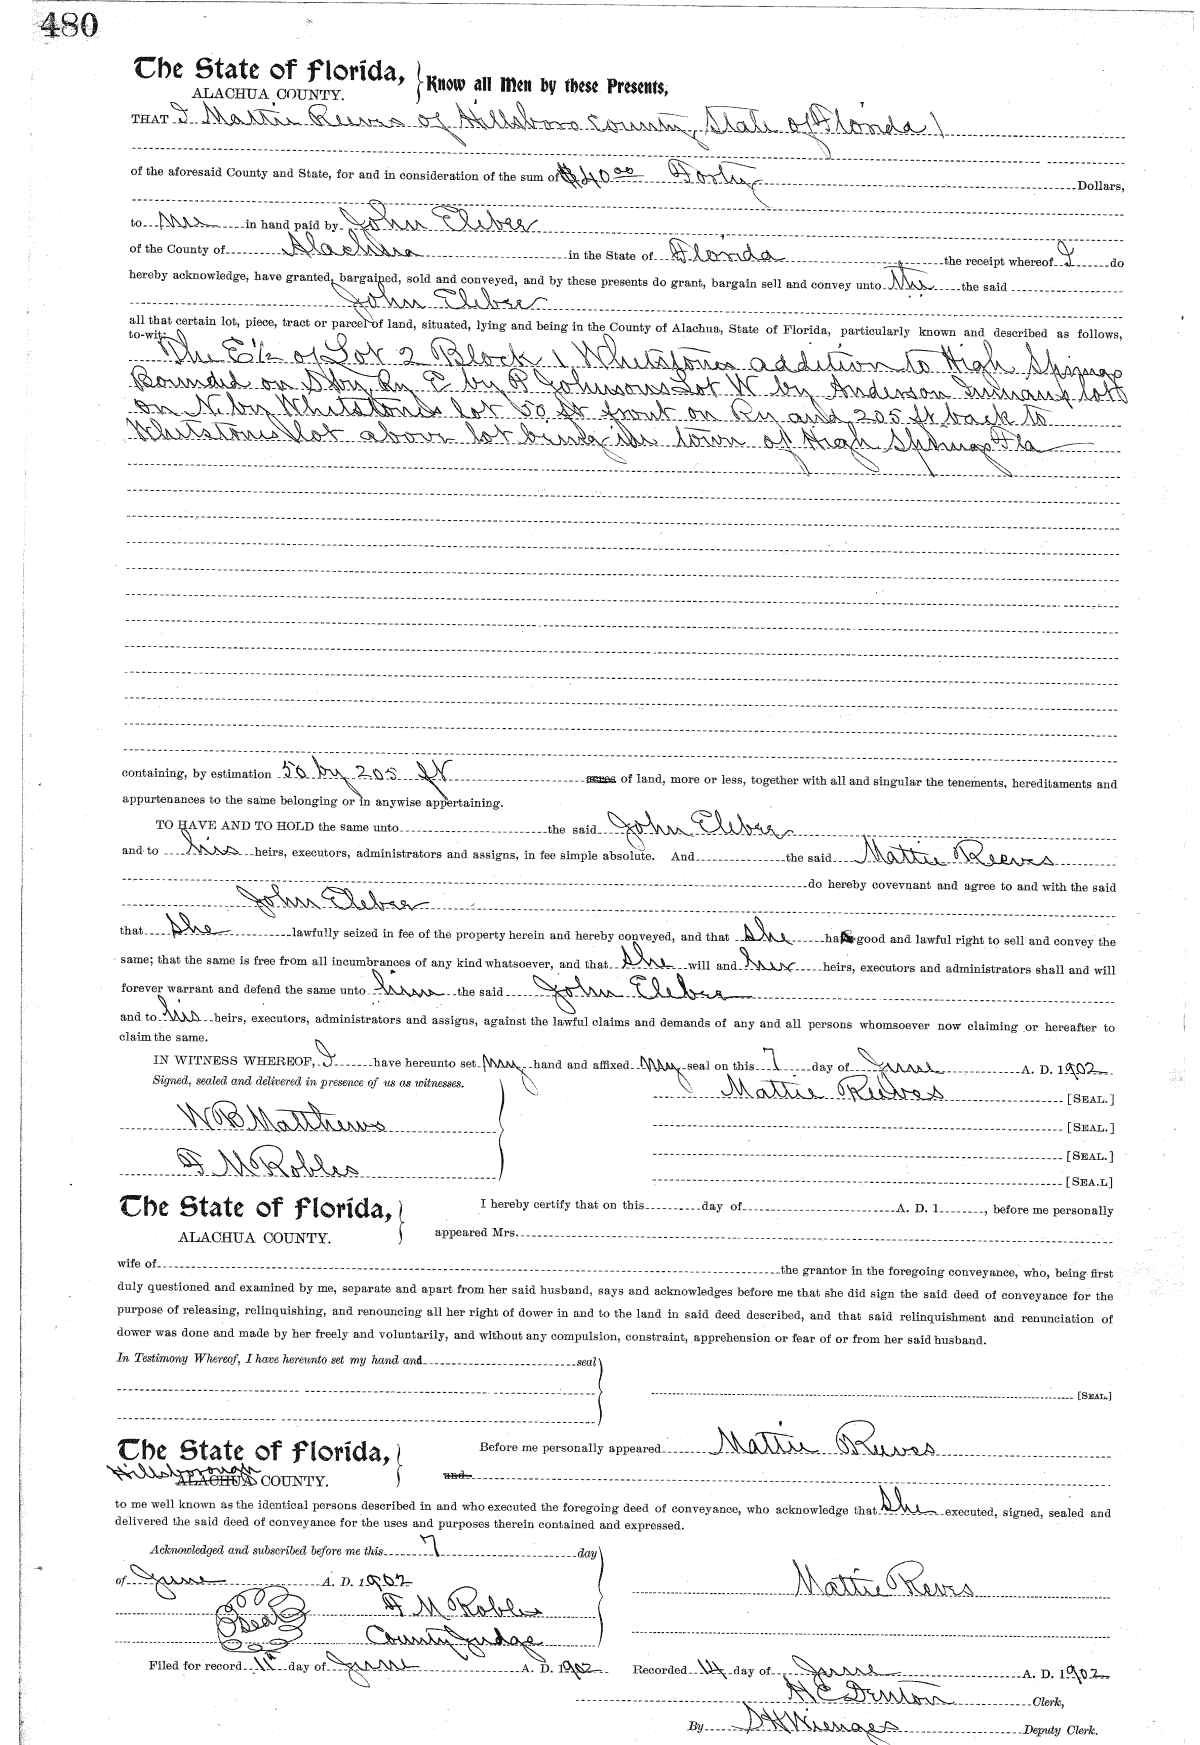 480
The State of Florida,
ALACHUA COUNTY.
Know all Men by these Presents,
THAT I Mattie Reeves of Hillsboro County, State of Florida
of the aforesaid County and State, for and in consideration of the sum of $40.00 Forty Dollars,
to me in hand paid by John
of the County of Alachua in the State of Florida the receipt whereof I do
hereby acknowledge, have granted, bargained, sold and conveyed, and by these presents do grant, bargain sell and convey unto the said
John
all that certain lot, piece, tract or parcel of land, situated, lying and being in the County of Alachua, State of Florida, particularly known and described as follows,
to-wit:
The E 1/2 of Lot 2 Block 1 Whetstones addition to High Springs
Bounded on S by Ry E by P Johnsons Lot W by Anderson lot
on N. by Whitstones lot 50 ft front on Ry and 205 ft back to
Whitstones lot above lot being in the town of High Springs Fla
containing, by estimation 50 by 205 ft acres of land, more or less, together with all and singular the tenements, hereditaments and
appurtenances to the same belonging or in anywise appertaining.
TO HAVE AND TO HOLD the same unto the said John
and to his heirs, executors, administrators and assigns, in fee simple absolute. And the said Mattie Reeves
do hereby covevnant and agree to and with the said
John
that she lawfully seized in fee of the property herein and hereby conveyed, and that she has good and lawful right to sell and convey the
same; that the same is free from all incumbrances of any kind whatsoever, and that she will and her heirs, executors and administrators shall and will
forever warrant and defend the same unto him the said John
and to his heirs, executors, administrators and assigns, against the lawful claims and demands of any and all persons whomsoever now claiming or hereafter to
claim the same.
IN WITNESS WHEREOF, I have hereunto set my hand and affixed my seal on this 7 day of June A. D. 1902
Signed, sealed and delivered in presence of us as witnesses.
Mattie Reeves [SEAL.]
W B Matthews [SEAL.]
[SEAL.]
F M Robles [SEA.L]
The State of Florida,
ALACHUA COUNTY.
I hereby certify that on this day of A. D. 1 , before me personally
appeared Mrs.
wife of the grantor in the foregoing conveyance, who, being first
duly questioned and examined by me, separate and apart from her said husband, says and acknowledges before me that she did sign the said deed of conveyance for the
purpose of releasing, relinquishing, and renouncing all her right of dower in and to the land in said deed described, and that said relinquishment and renunciation of
dower was done and made by her freely and voluntarily, and without any compulsion, constraint, apprehension or fear of or from her said husband.
In Testimony Whereof, I have hereunto set my hand and seal
[SEAL.]
The State of Florida,
Hillsborough
ALACHUA COUNTY.
Before me personally appeared Mattie Reeves
and
to me well known as the identical persons described in and who executed the foregoing deed of conveyance, who acknowledge that she executed, signed, sealed and
delivered the said deed of conveyance for the uses and purposes therein contained and expressed.
Acknowledged and subscribed before me this 7 day
of June A. D. 1902
Mattie Reves
Seal
F M Robles
County Judge
Filed for record 11 day of June A. D. 1902 Recorded 14 day of June A. D. 1902
H E Denton Clerk,
By S H Wienges Deputy Clerk.